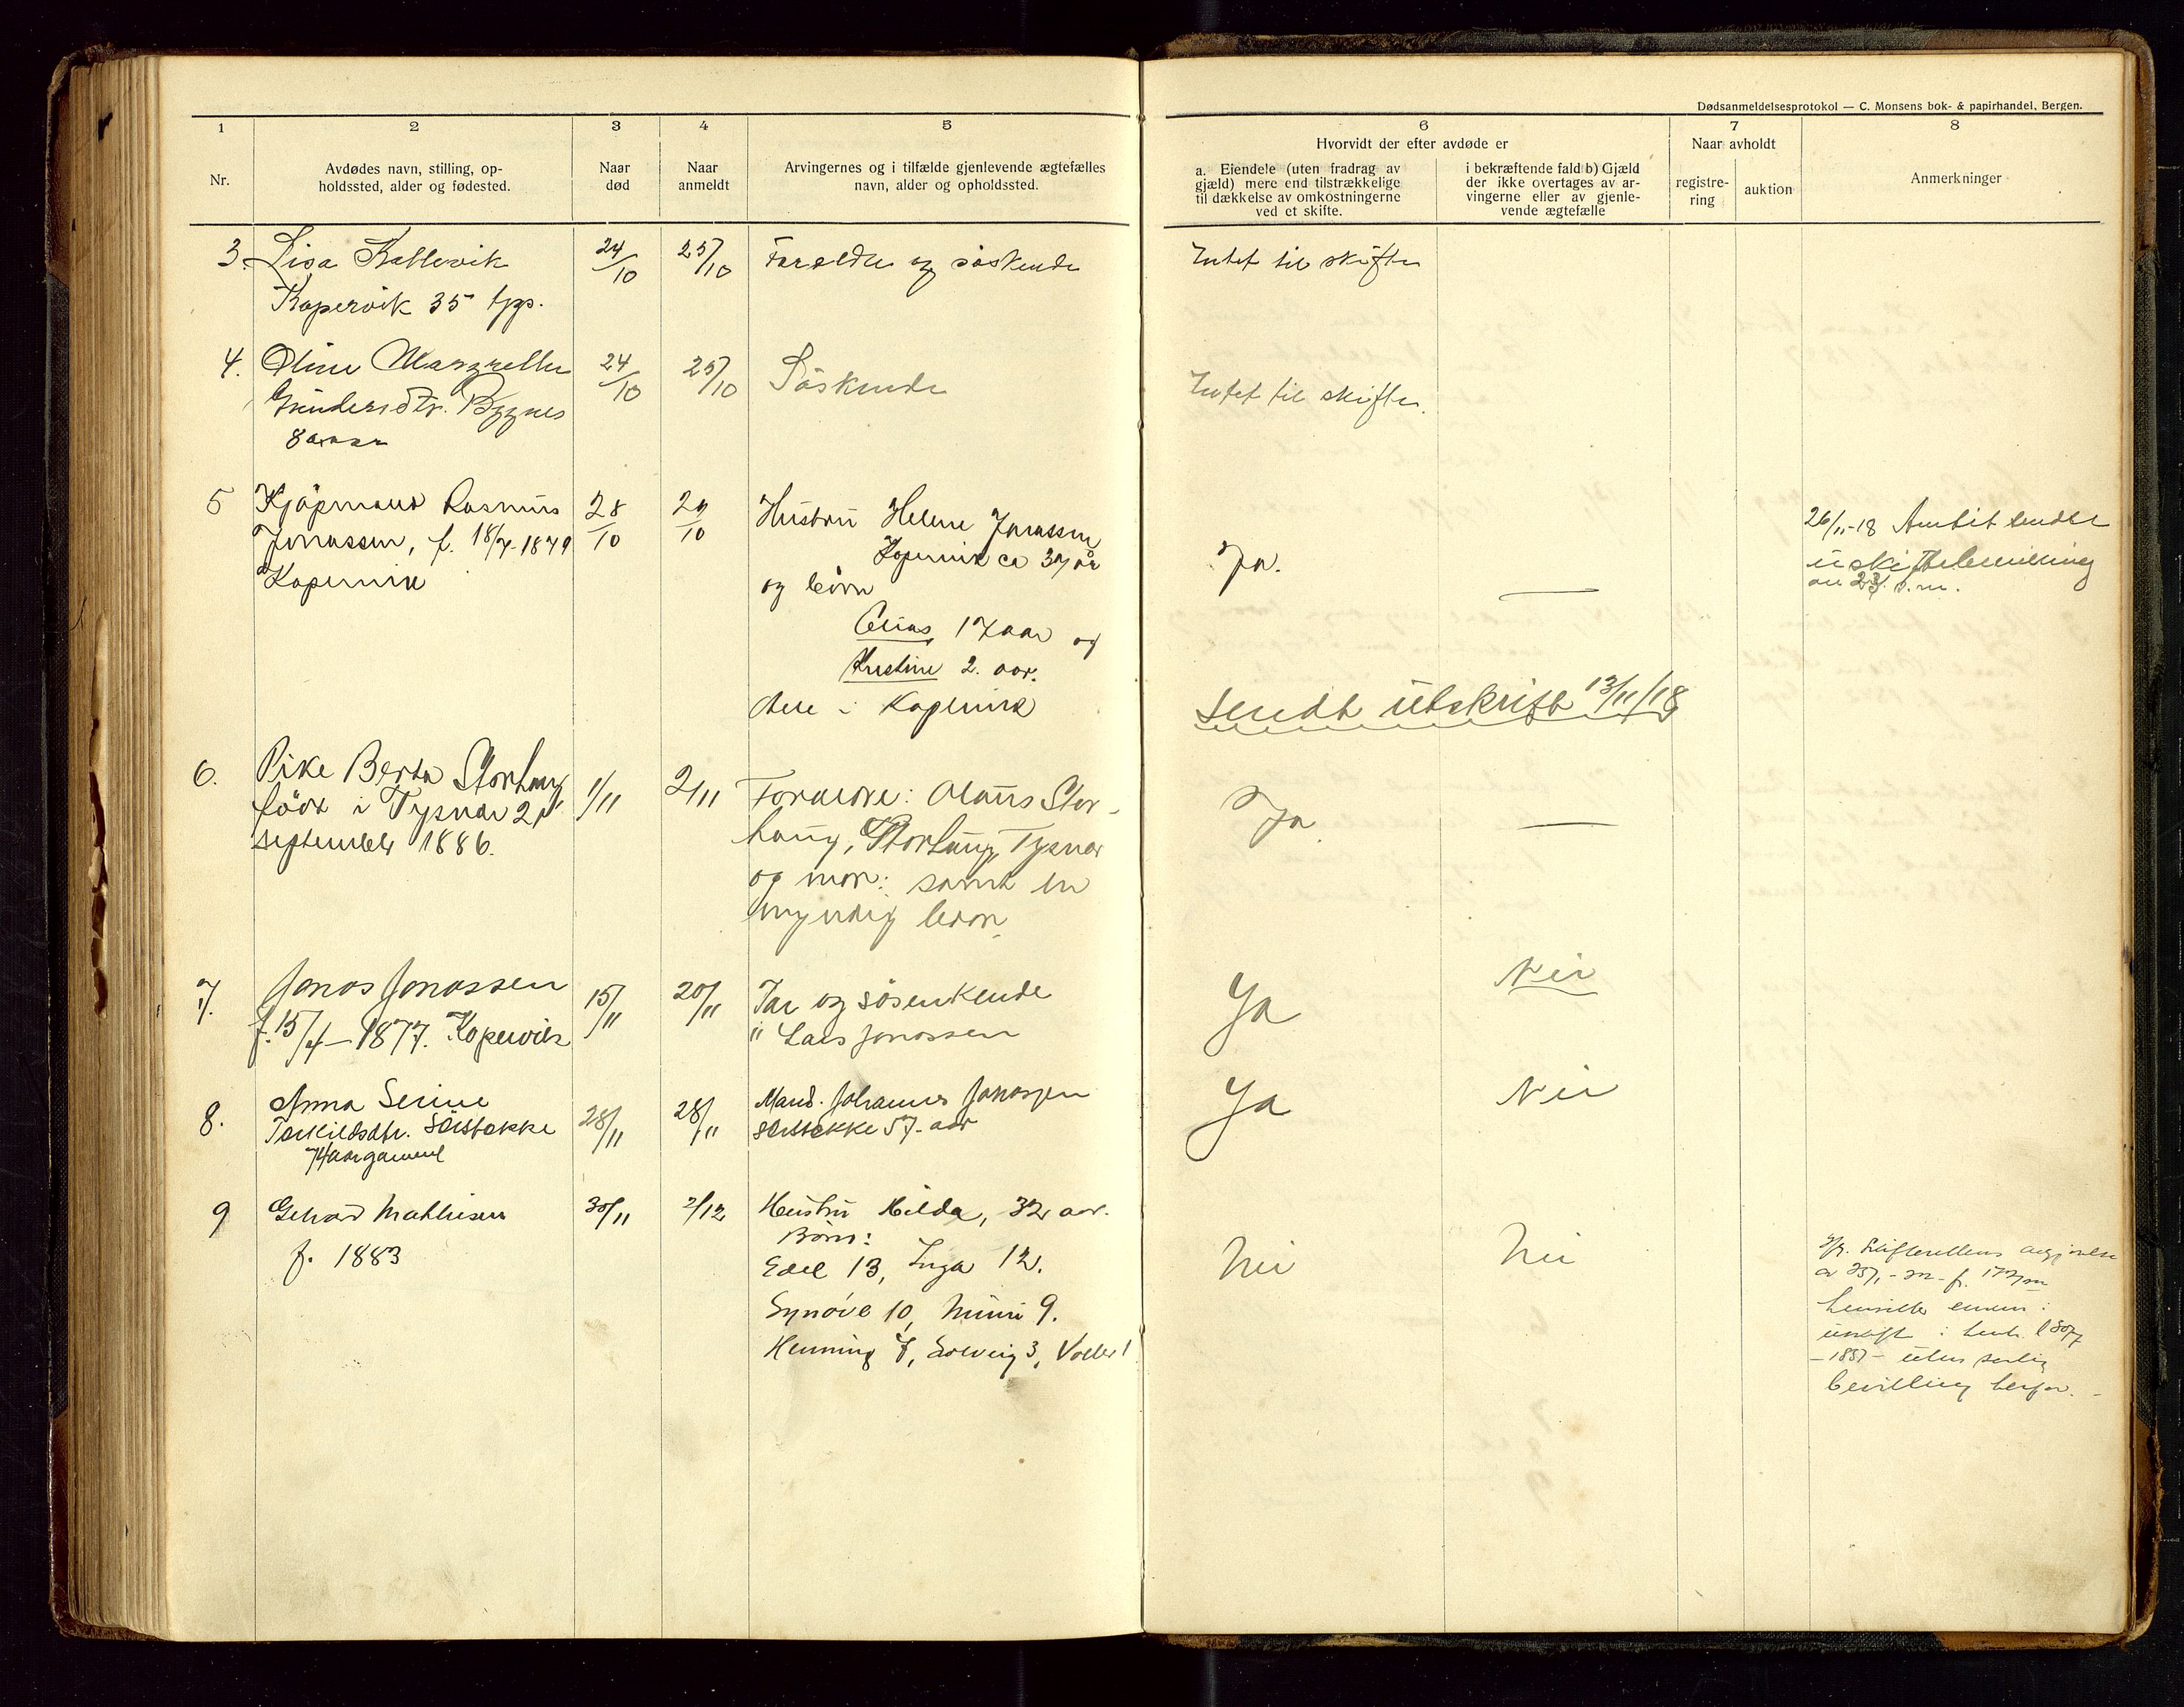 Dødsanmeldelsesprotokol — C. Monsens bok- & papirhandel, Bergen.
1 2 3 4 5 6 7 8
Nr.
Avdødes navn, stilling, op-
holdssted, alder og fødested.
Naar
død
Naar
anmeldt
Arvingernes og i tilfælde gjenlevende ægtefælles
navn, alder og opholdssted.
Hvorvidt der efter avdøde er
a. Eiendele (uten fradrag av
gjæld) mere end tilstrækkelige
til dækkelse av omkostningerne
ved et skifte.
i bekræftende fald b) Gjæld
der ikke overtages av ar-
vingerne eller av gjenle-
vende ægtefælle
Naar avholdt
registre-
ring
auktion
Anmerkninger
3. Lisa Kallevik
Kopervik 35
24/10
25/10
Foreldre og søskende
Intet til skifte
4. Oline
Bygnes
24/10
25/10
Søskende
Intet til skifte.
5 Kjøpmand Rasmus
Jonassen, f. 18/7-1879
Kopervik
28/10
29/10
Hustru Helene Jonassen
Kopervik ca
og børn
Elias, 17 aar og
Kristine 2. aar.
i Kopervik
Ja.
—
26/11-18 Amtet sender
uskiftebevilling
av 23/ s.m.
Sendt utskrift 13/11/18
6. Pike Berta Storhaug
født i Tysvær 21
september 1886.
1/11
2/11
Foreldre: Olaus Stor-
haug, Storhaug, Tysvær
og mor: samt en
myndig bror.
Ja
—
7. Jonas Jonassen
f. 15/4-1877. Kopervik
15/11
20/11
Far og søsenkende
" Lars Jonassen
Ja
Nei
8. Anna Serine
Torkildsdtr. Sørstokke
74 aar gammel
28/11
28/11
Mand. Johannes Jonassen
Sørstokke 57. aar
Ja
Nei
9 Gerhard Mathiesen
f. 1883
30/11
2/12
Hustru Hilda, 32 aar.
Børn:
Edel 13, Inga 12.
Synøve 10, Mimi 9.
Henning 7, Solveig 3,
Nei
Nei
Skifterettens avgjørelse
uskift i
uten særlig
bevilling herfor.